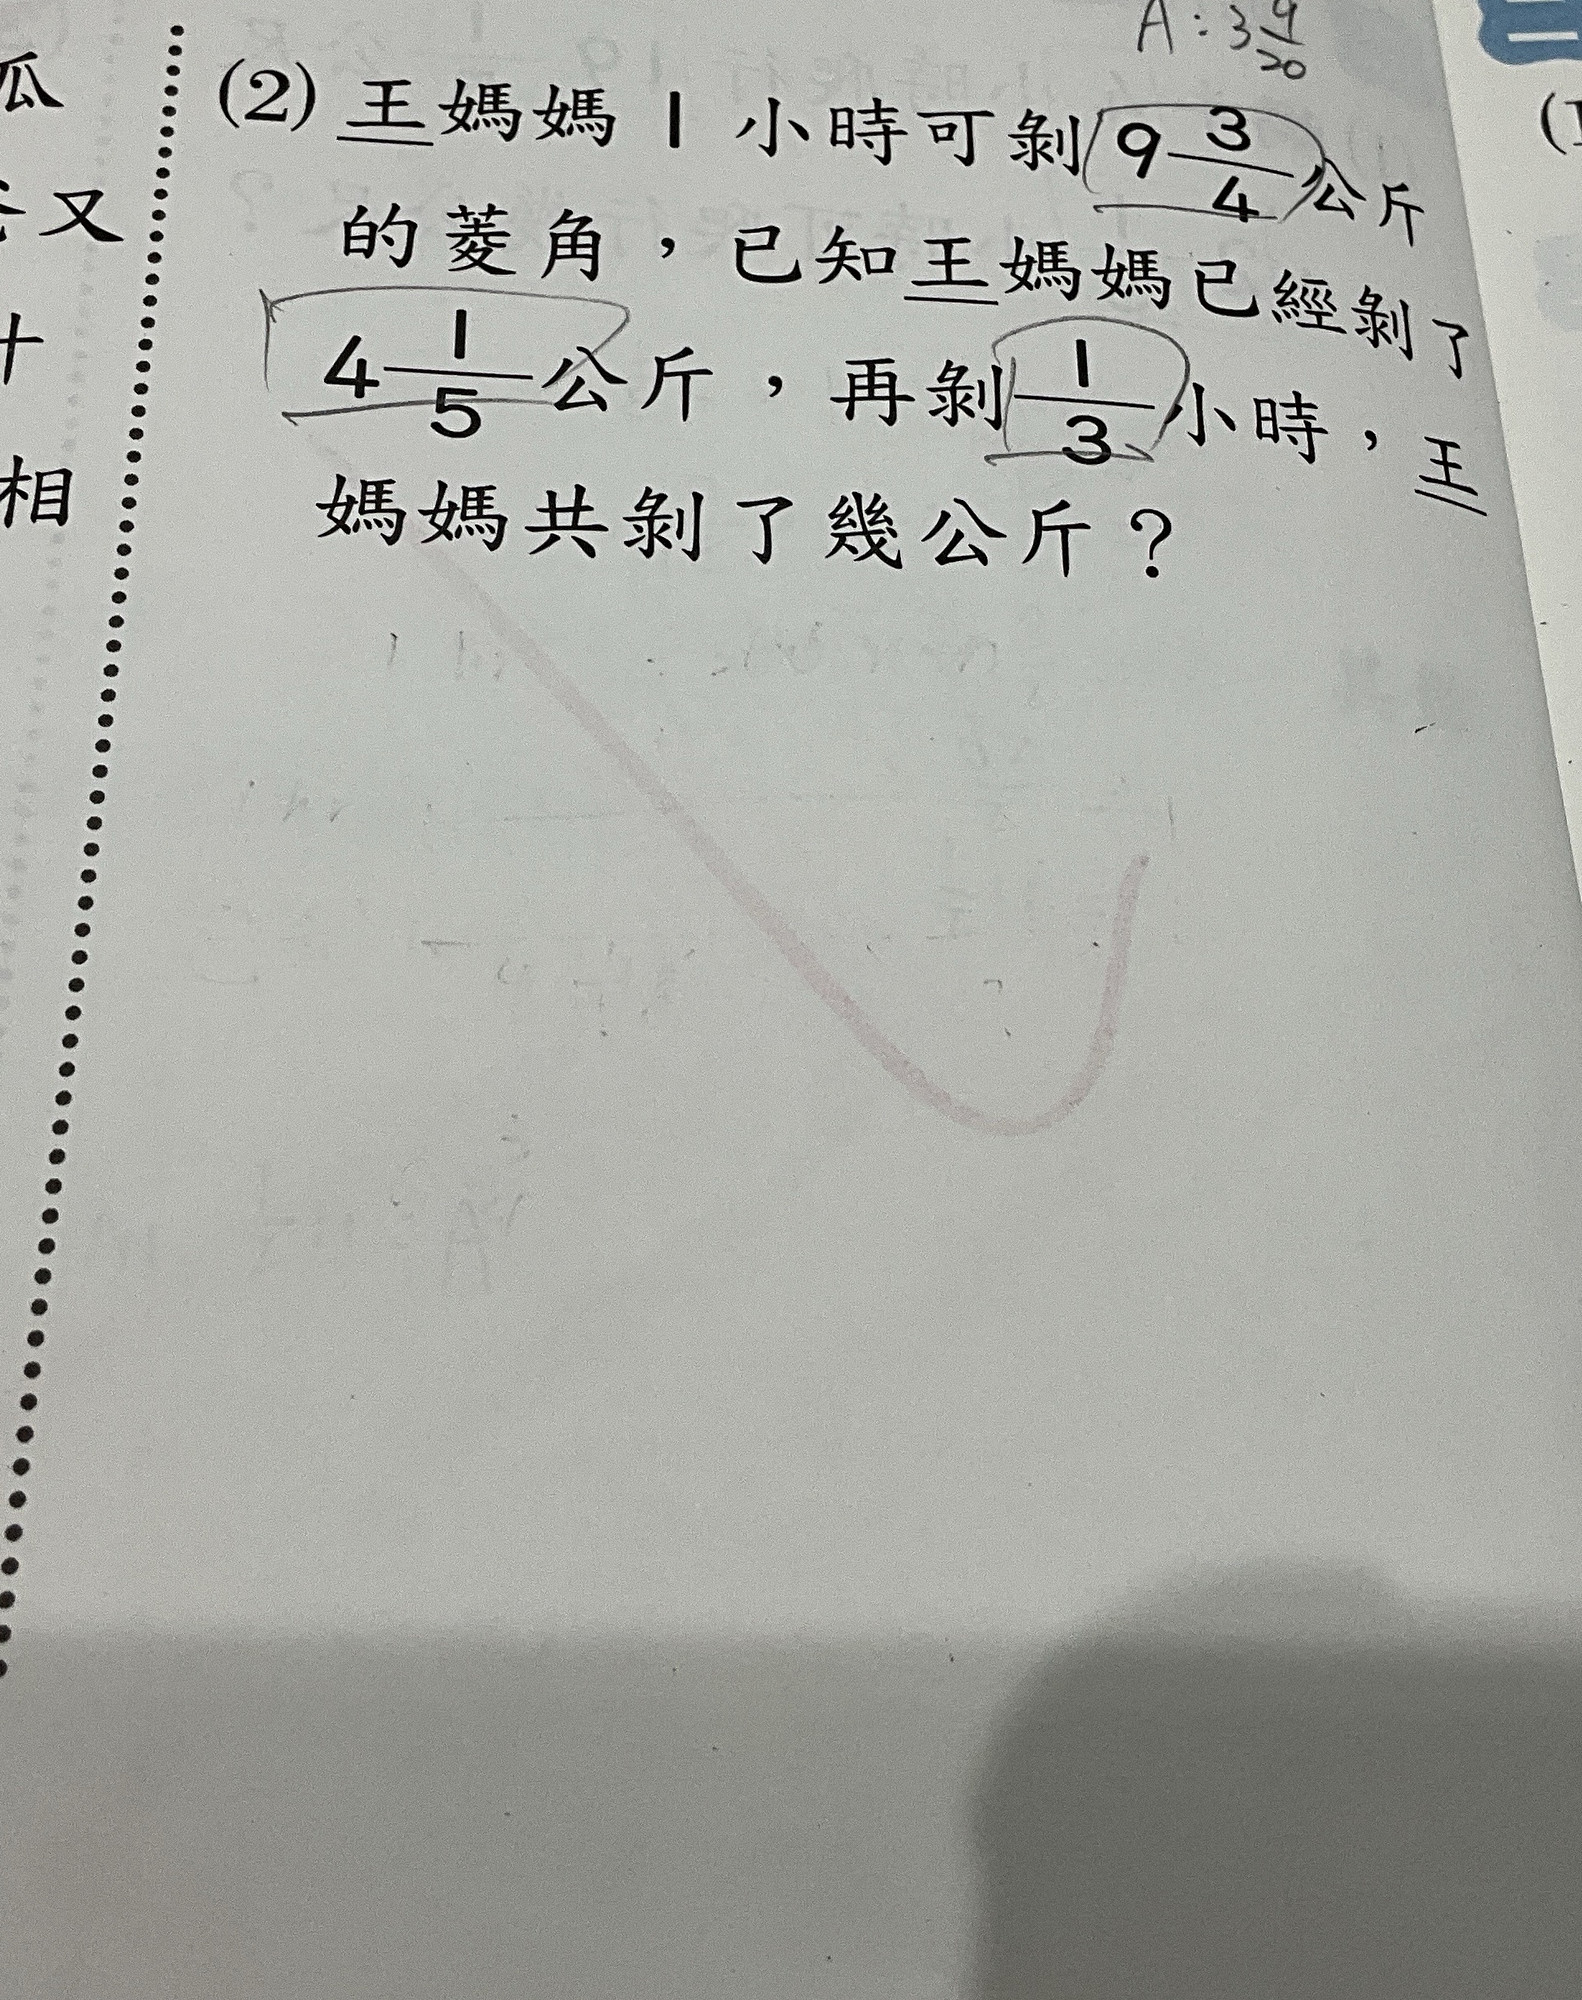 A：3 9/20
(2) 王媽媽 1 小時可剝 9 3/4 公斤
的菱角，已知王媽媽已經剝了
4 1/5 公斤，再剝 1/3 小時，王
媽媽共剝了幾公斤？
瓜
又
十
相
二
(1